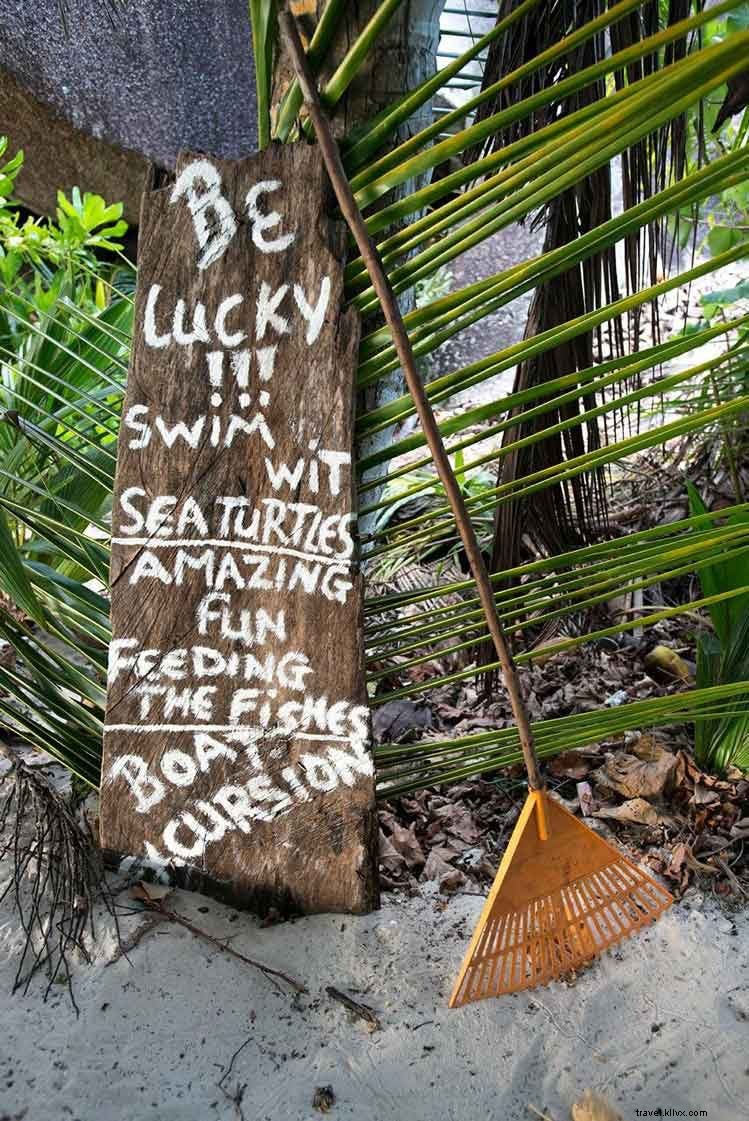 BE
LUCKY
!!!
SWiM
WiT
SEA TURTLES
AMAZING
FUN
FEEDING
THE FiSHES
BOAT
XCURSION
travel.klivx.com